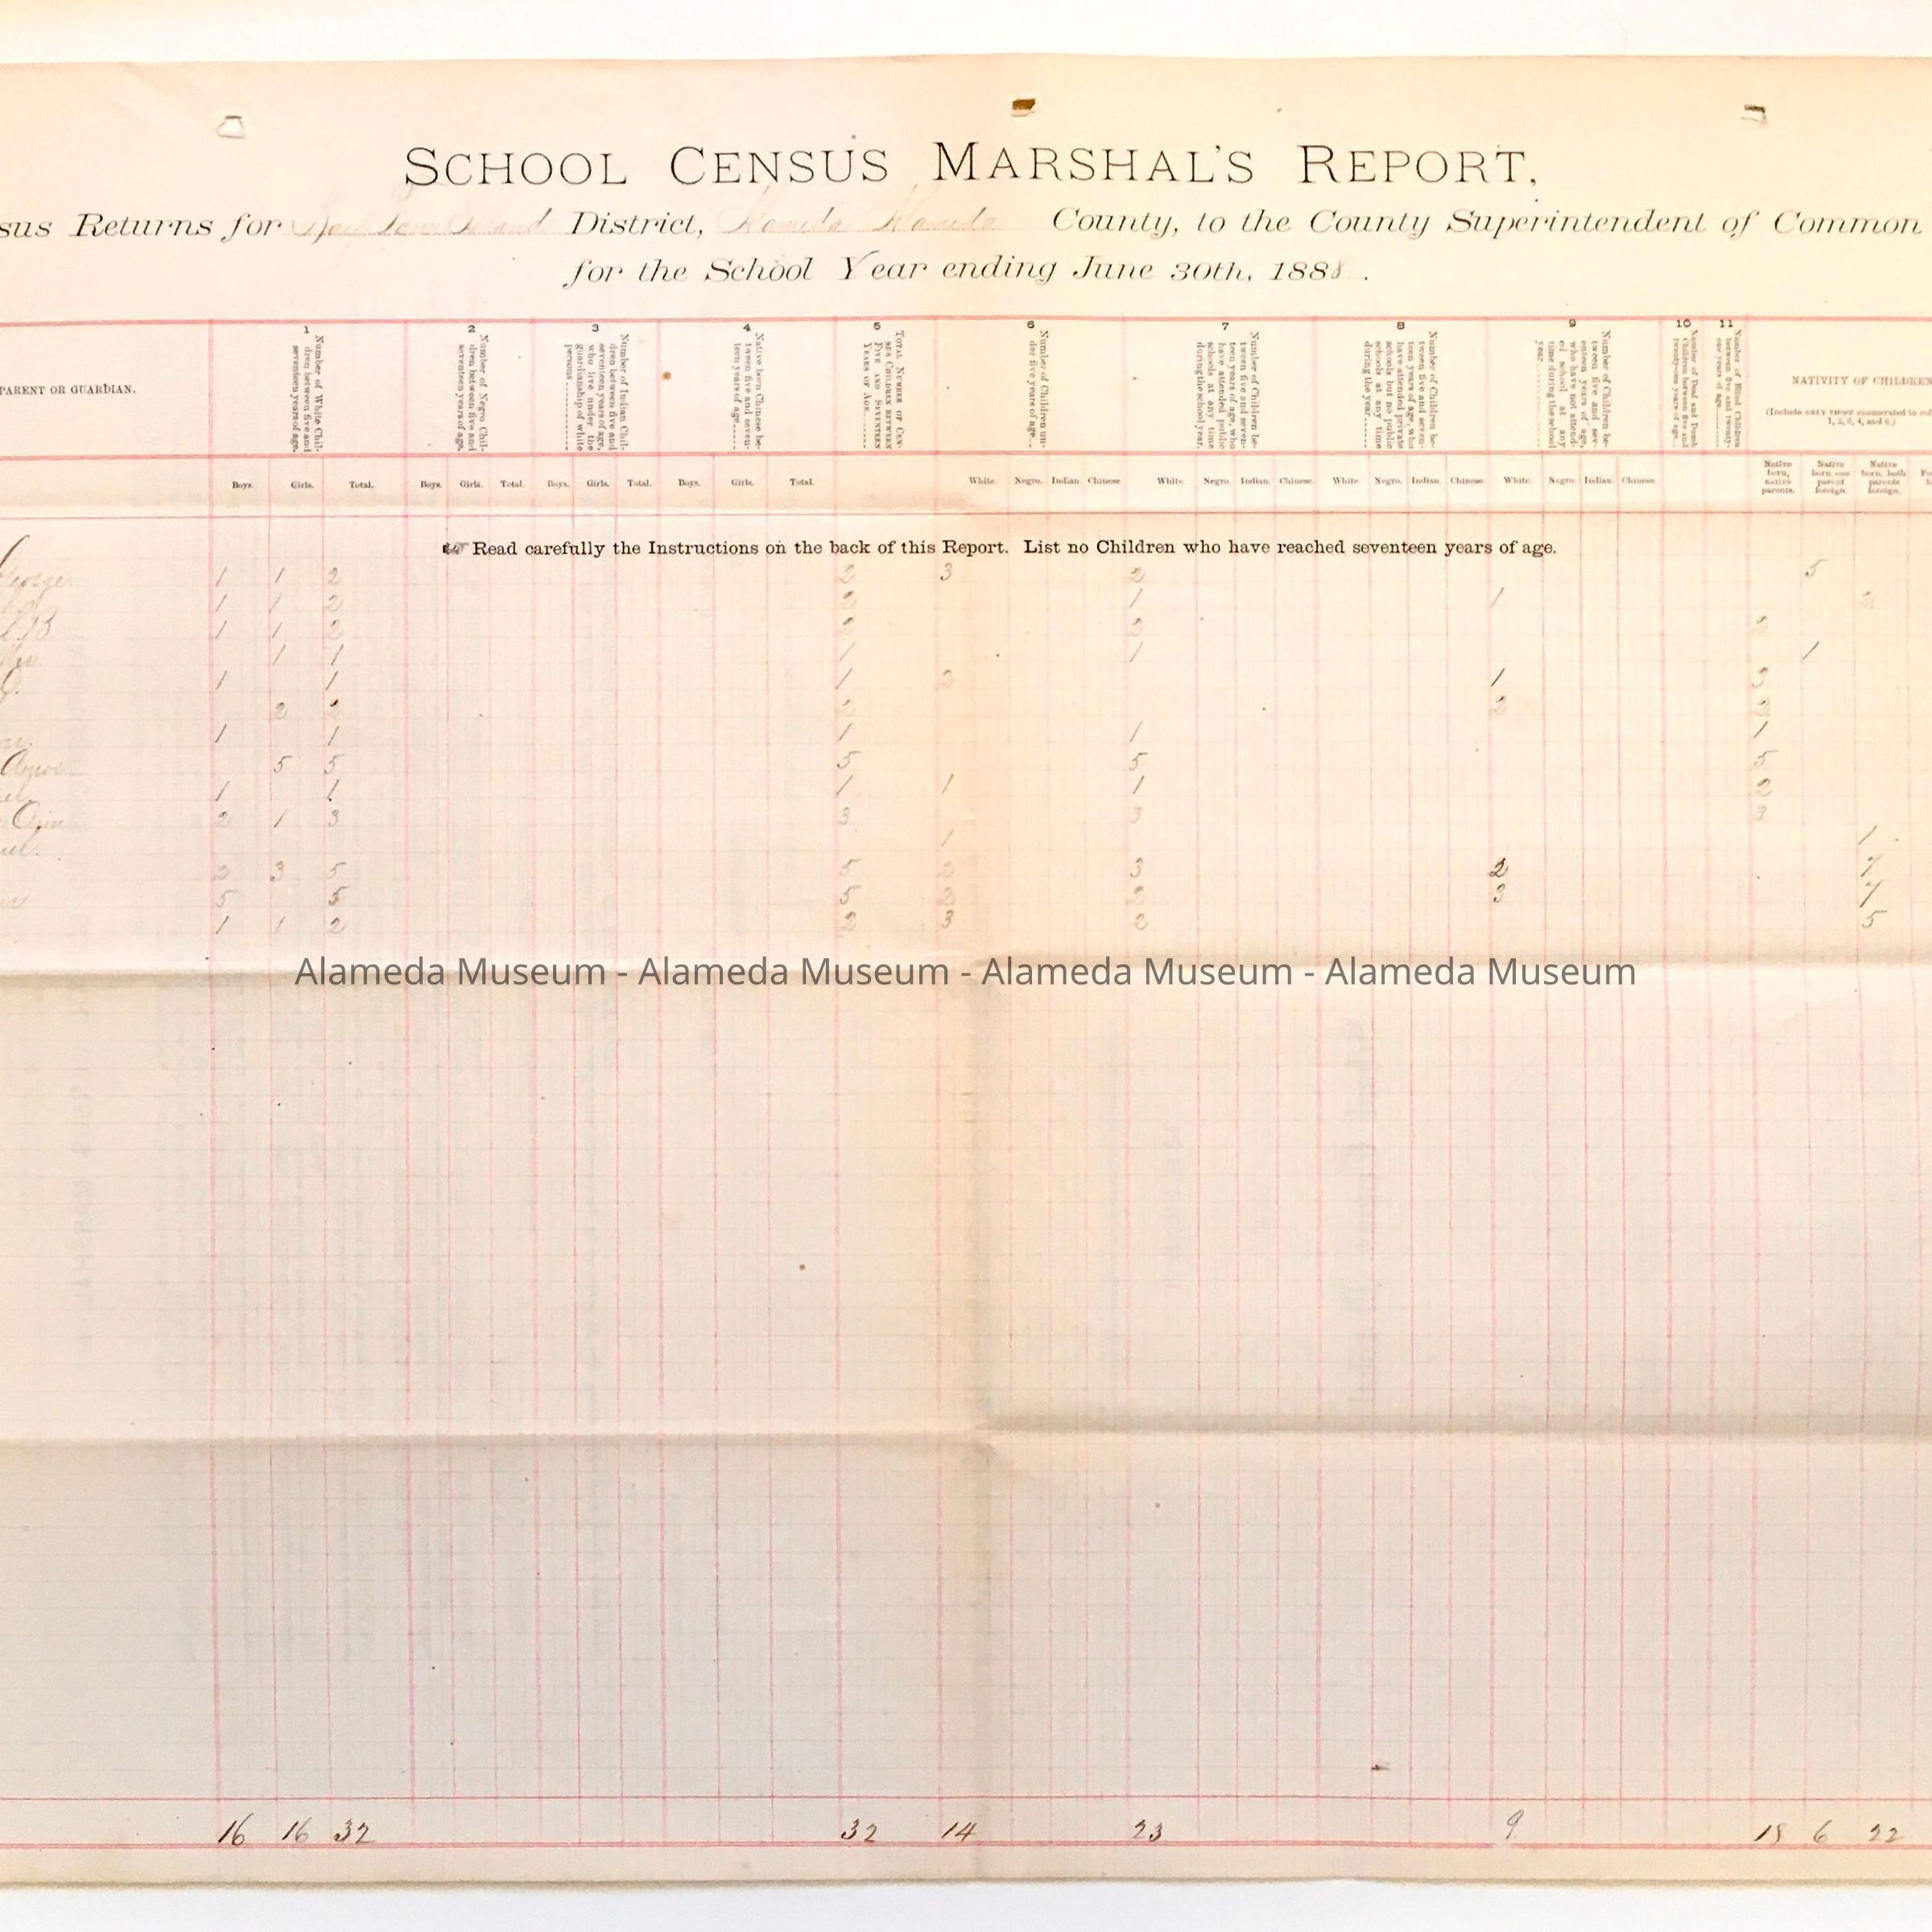 SCHOOL CENSUS MARSHAL'S REPORT,
sus Returns for Bay Farm Island District, Alameda Alameda County, to the County Superintendent of Common
for the School Year ending June 30th, 1888.
PARENT OR GUARDIAN.
1 Number of White Children between five and seventeen years of age.
2 Number of Negro Children between five and seventeen years of age.
3 Number of Indian Children between five and seventeen years of age, who live under the guardianship of white persons
4 Native born Chinese between five and seventeen years of age
5 TOTAL NUMBER OF CENSUS CHILDREN BETWEEN FIVE AND SEVENTEEN YEARS OF AGE
6 Number of Children under five years of age
7 Number of Children between five and seventeen years of age, who have attended public schools at any time during the school year.
8 Number of Children between five and seventeen years of age, who have attended private schools but no public schools at any time during the year
9 Number of Children between five and seventeen years of age, who have not attended school at any time during the school year
10 Number of Deaf and Dumb Children between five and twenty-one years of age
11 Number of Blind Children between five and twenty-one years of age
NATIVITY OF CHILDREN
(Include ONLY THOSE enumerated in col 1, 2, 3, 4, and 6.)
Boys. Girls. Total. Boys. Girls. Total. Boys. Girls. Total. Boys. Girls. Total. White. Negro. Indian. Chinese White. Negro. Indian. Chinese. White. Negro. Indian. Chinese White. Negro. Indian. Chinese. Native born, native parents. Native born, one parent foreign. Native born, both parents foreign.
Read carefully the Instructions on the back of this Report. List no Children who have reached seventeen years of age.
George 1 1 2 2 3 2 5
1 1 2 2 1 1 2
1 1 2 2 2 2
1 1 1 1 1
1 1 1 2 1 3
2 2 2 2 2
1 1 1 1 1
5 5 5 5 5
1 1 1 1 1 2
2 1 3 3 3 3
1 1
2 3 5 5 2 3 2 7
5 5 5 2 2 3 7
1 1 2 2 3 2 5
Alameda Museum - Alameda Museum - Alameda Museum - Alameda Museum
16 16 32 32 14 23 9 18 6 22